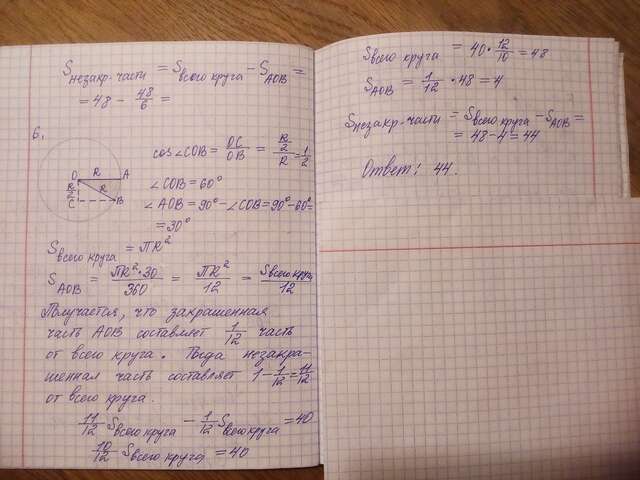 Sнезакр. части = Sвсего круга − S AOB =
= 48 − 48/6 =
6.
cos∠COB = OC/OB = (R/2)/R = 1/2
O R A
R/2 R
C B
∠COB = 60°
∠AOB = 90° − ∠COB = 90° − 60° =
= 30°
Sвсего круга = ПR²
S AOB = ПR²·30/360 = ПR²/12 = Sвсего круга/12
Получается, что закрашенная
часть AOB составляет 1/12 часть
от всего круга. Тогда незакра-
шенная часть составляет 1 − 1/12 = 11/12
от всего круга.
11/12 Sвсего круга − 1/12 Sвсего круга = 40
10/12 Sвсего круга = 40
Sвсего круга = 40 · 12/10 = 48
S AOB = 1/12 · 48 = 4
Sнезакр. части = Sвсего круга − S AOB =
= 48 − 4 = 44
Ответ: 44.